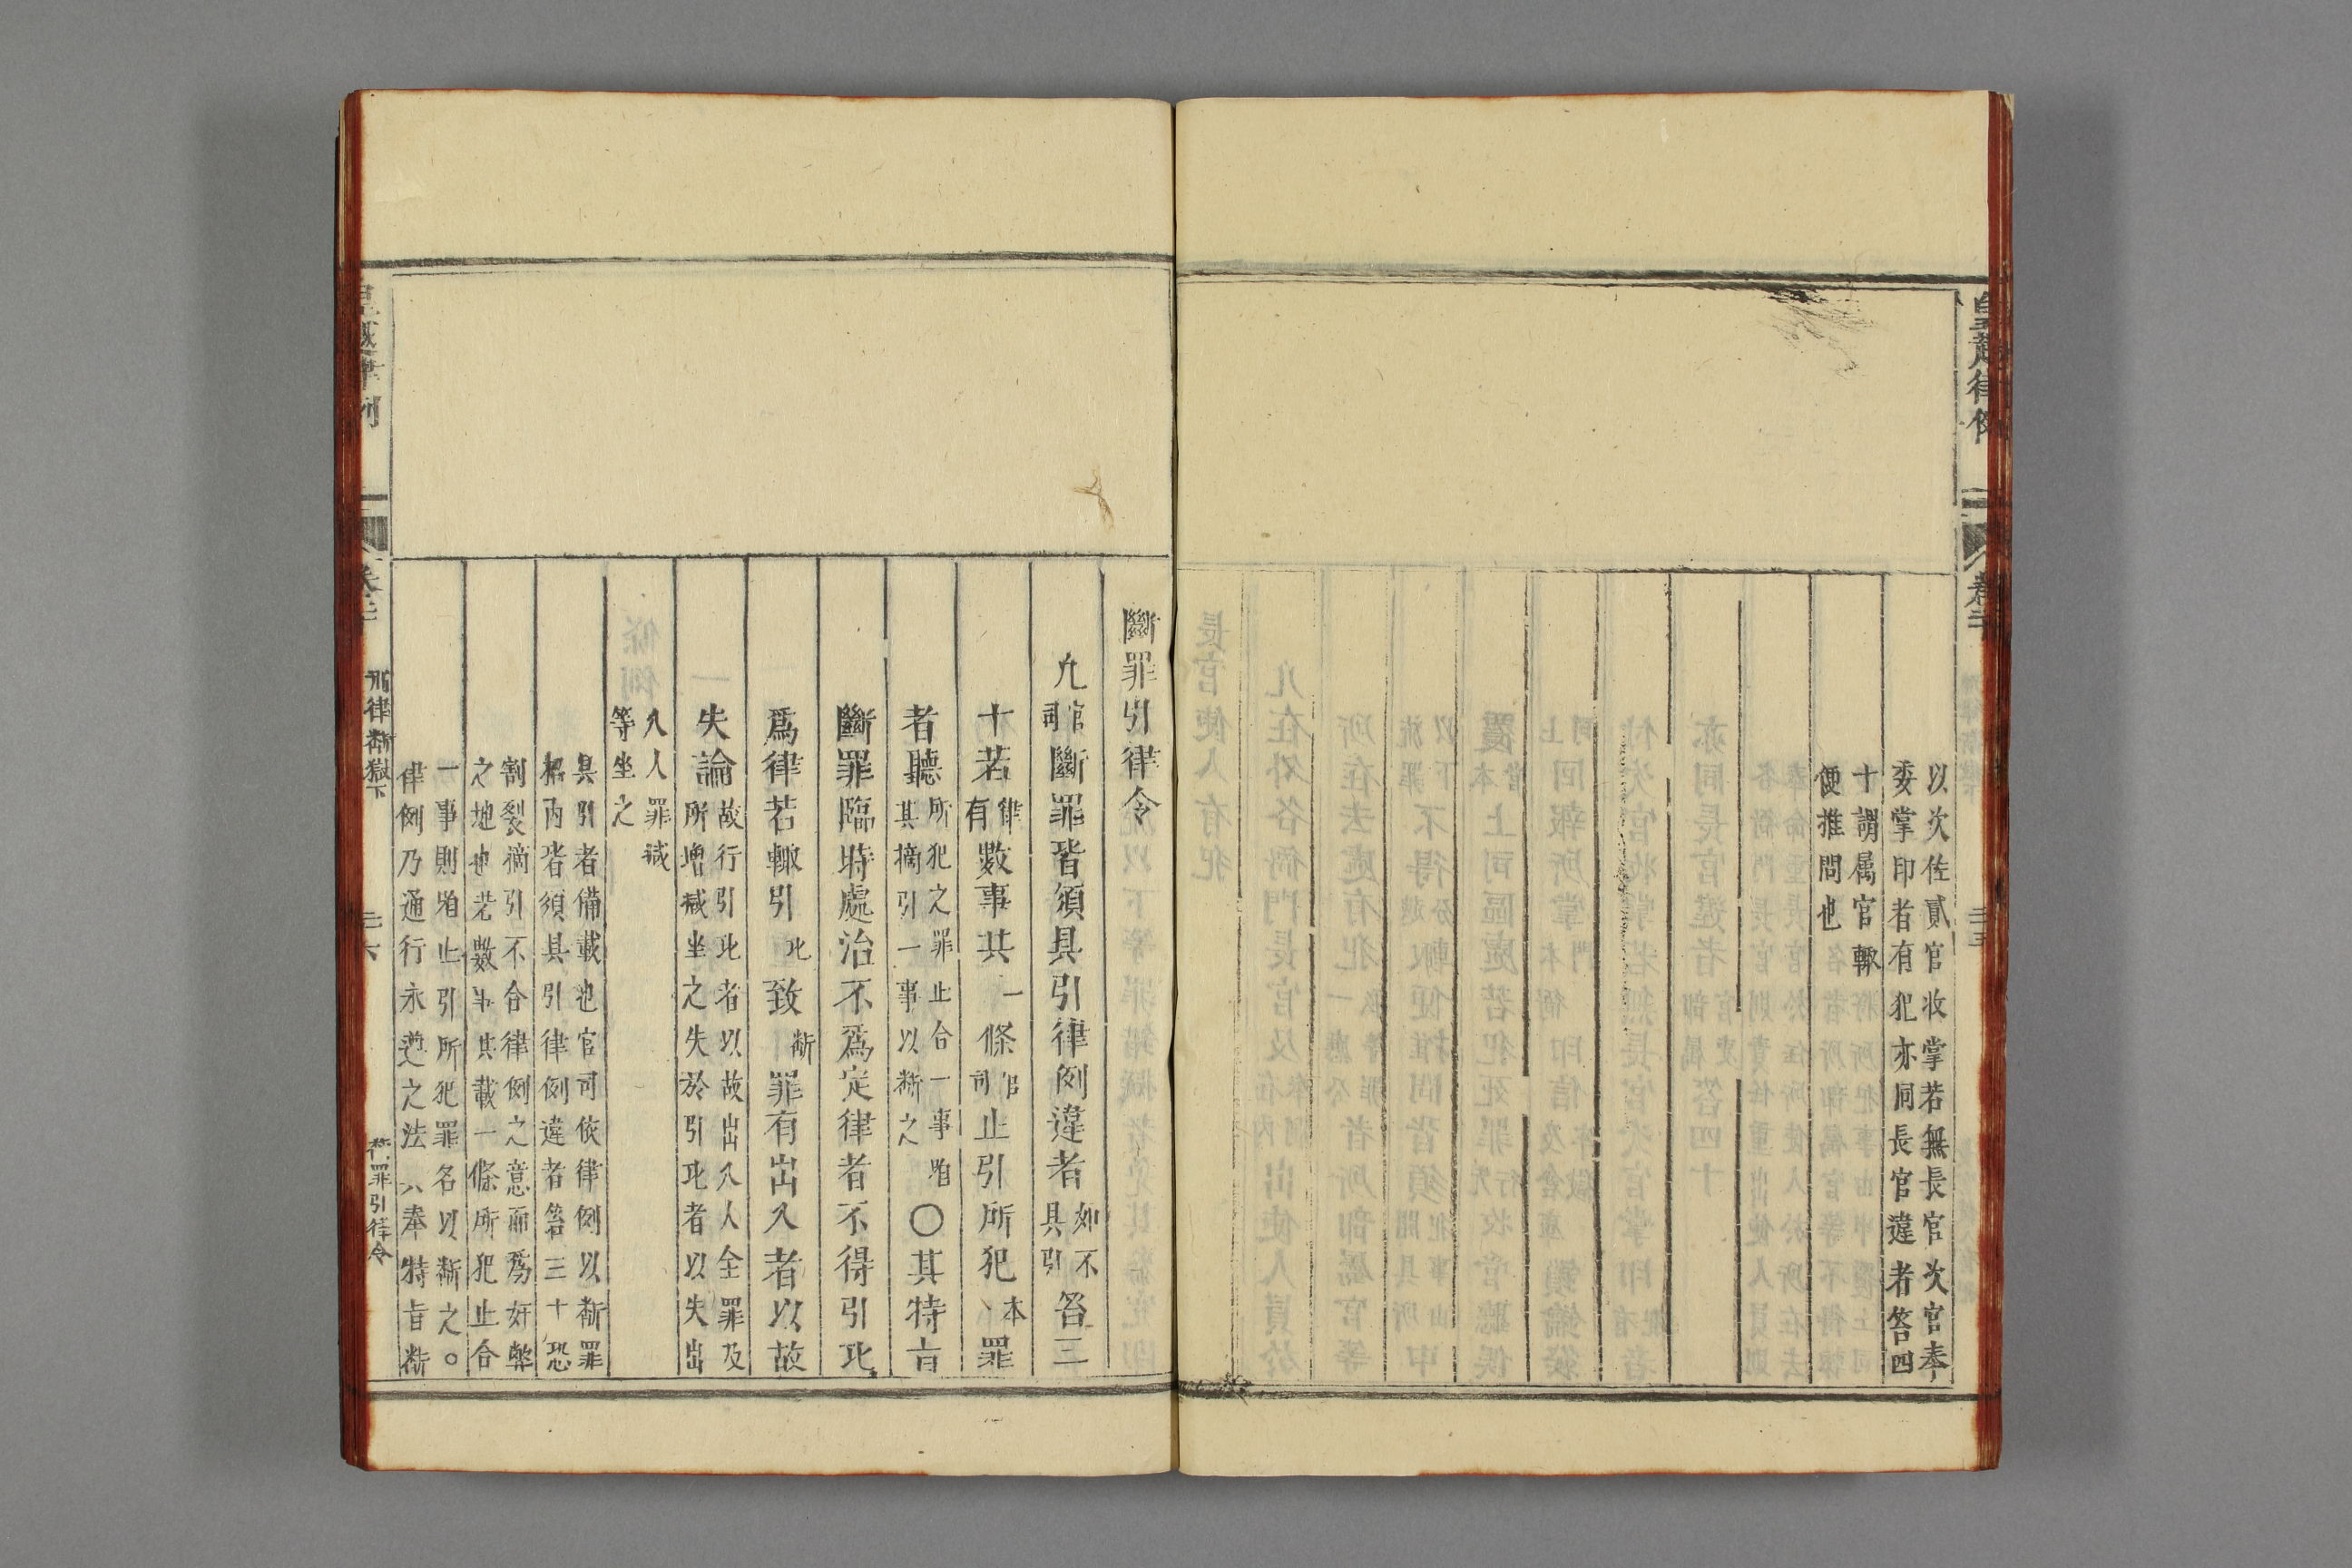 皇越律例
卷二十
三五
以次佐貳官收掌若無長官次官奉
委掌印者有犯亦同長官違者笞四
十謂属官輙
便推問也
斷罪引律令
凡官司斷罪皆須具引律例違者如不具引笞三
十若律有數事共一條官司止引所犯本罪
者聽所犯之罪止合一事
其摘引一事以斷之
〇其特旨
斷罪臨時處治不爲定律者不得引比
爲律若輙引比致斷罪有出入者以故
失論故行引比者以故出入人全罪及
所増减坐之失於引比者以失出
入人罪减
等坐之
具引者備載也官司依律例以斷罪
招内皆須具引律例違者笞三十恐
割裂摘引不合律例之意而爲奸弊
之地也若數事共載一條所犯止合
一事則止引所犯罪名以斷之。
律例乃通行永遵之法 奉特旨斷
皇越律例
刑律斷獄下
斷罪引律令